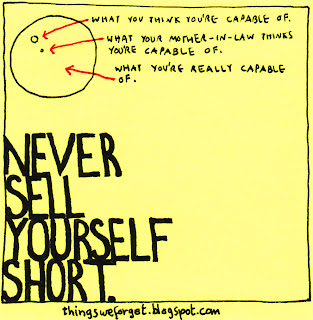 WHAT YOU THINK YOU'RE CAPABLE OF.
WHAT YOUR MOTHER-IN-LAW THINKS
YOU'RE CAPABLE OF.
WHAT YOU'RE REALLY CAPABLE
OF.
NEVER
SELL
YOURSELF
SHORT.
thingsweforget.blogspot.com